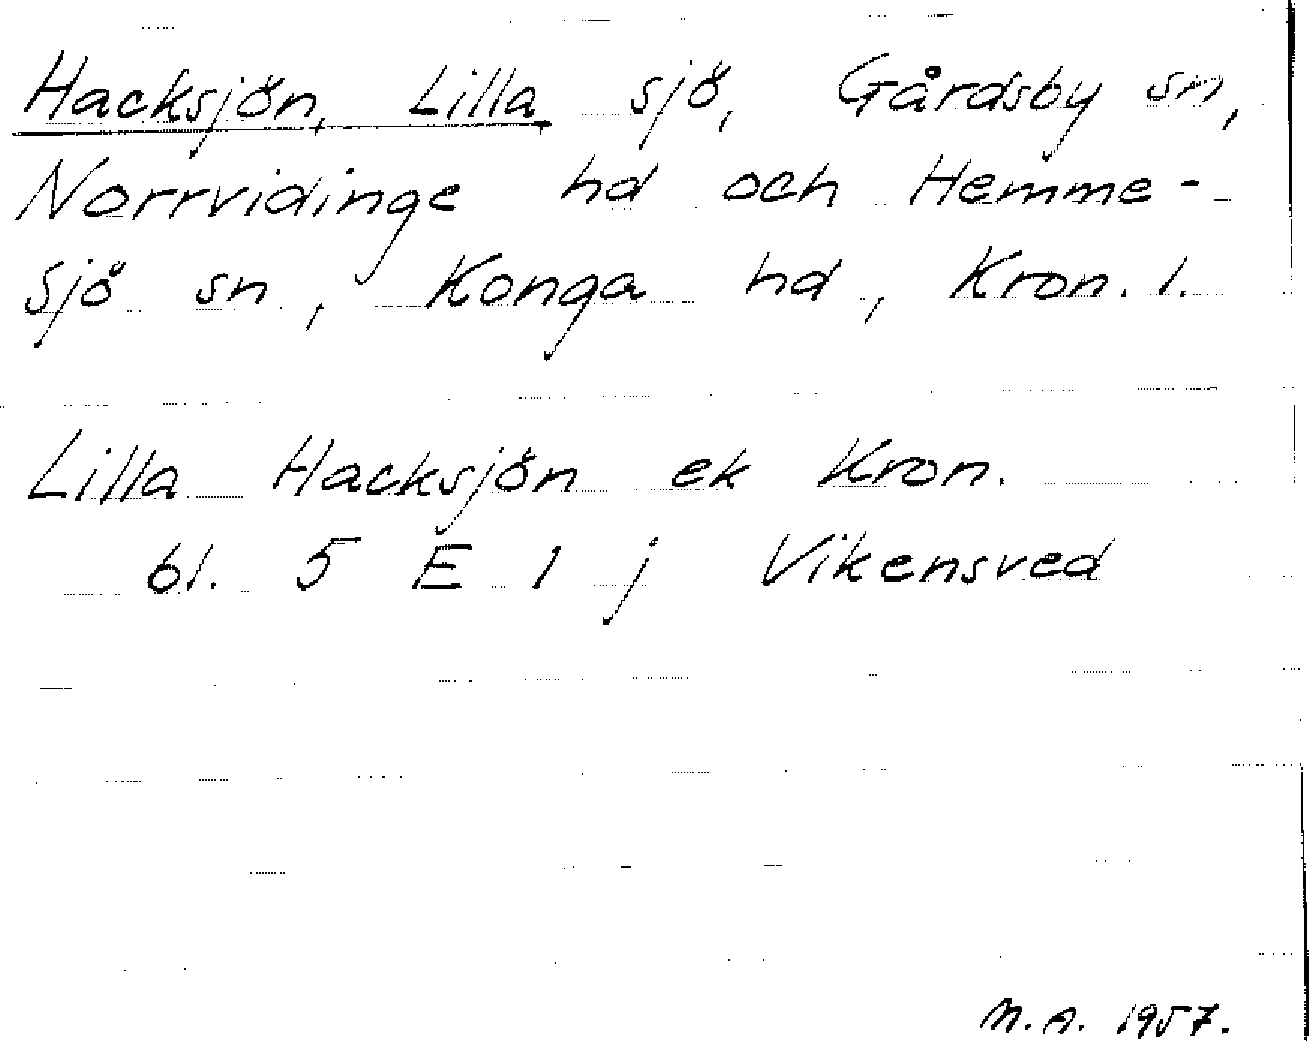 Hacksjön, Lilla sjö, Gårdsby sn,
Norrvidinge hd och Hemme-
sjö sn, Konga hd, Kron. l.
Lilla Hacksjön ek Kron.
bl. 5 E 1 j Vikensved
M.A. 1957.